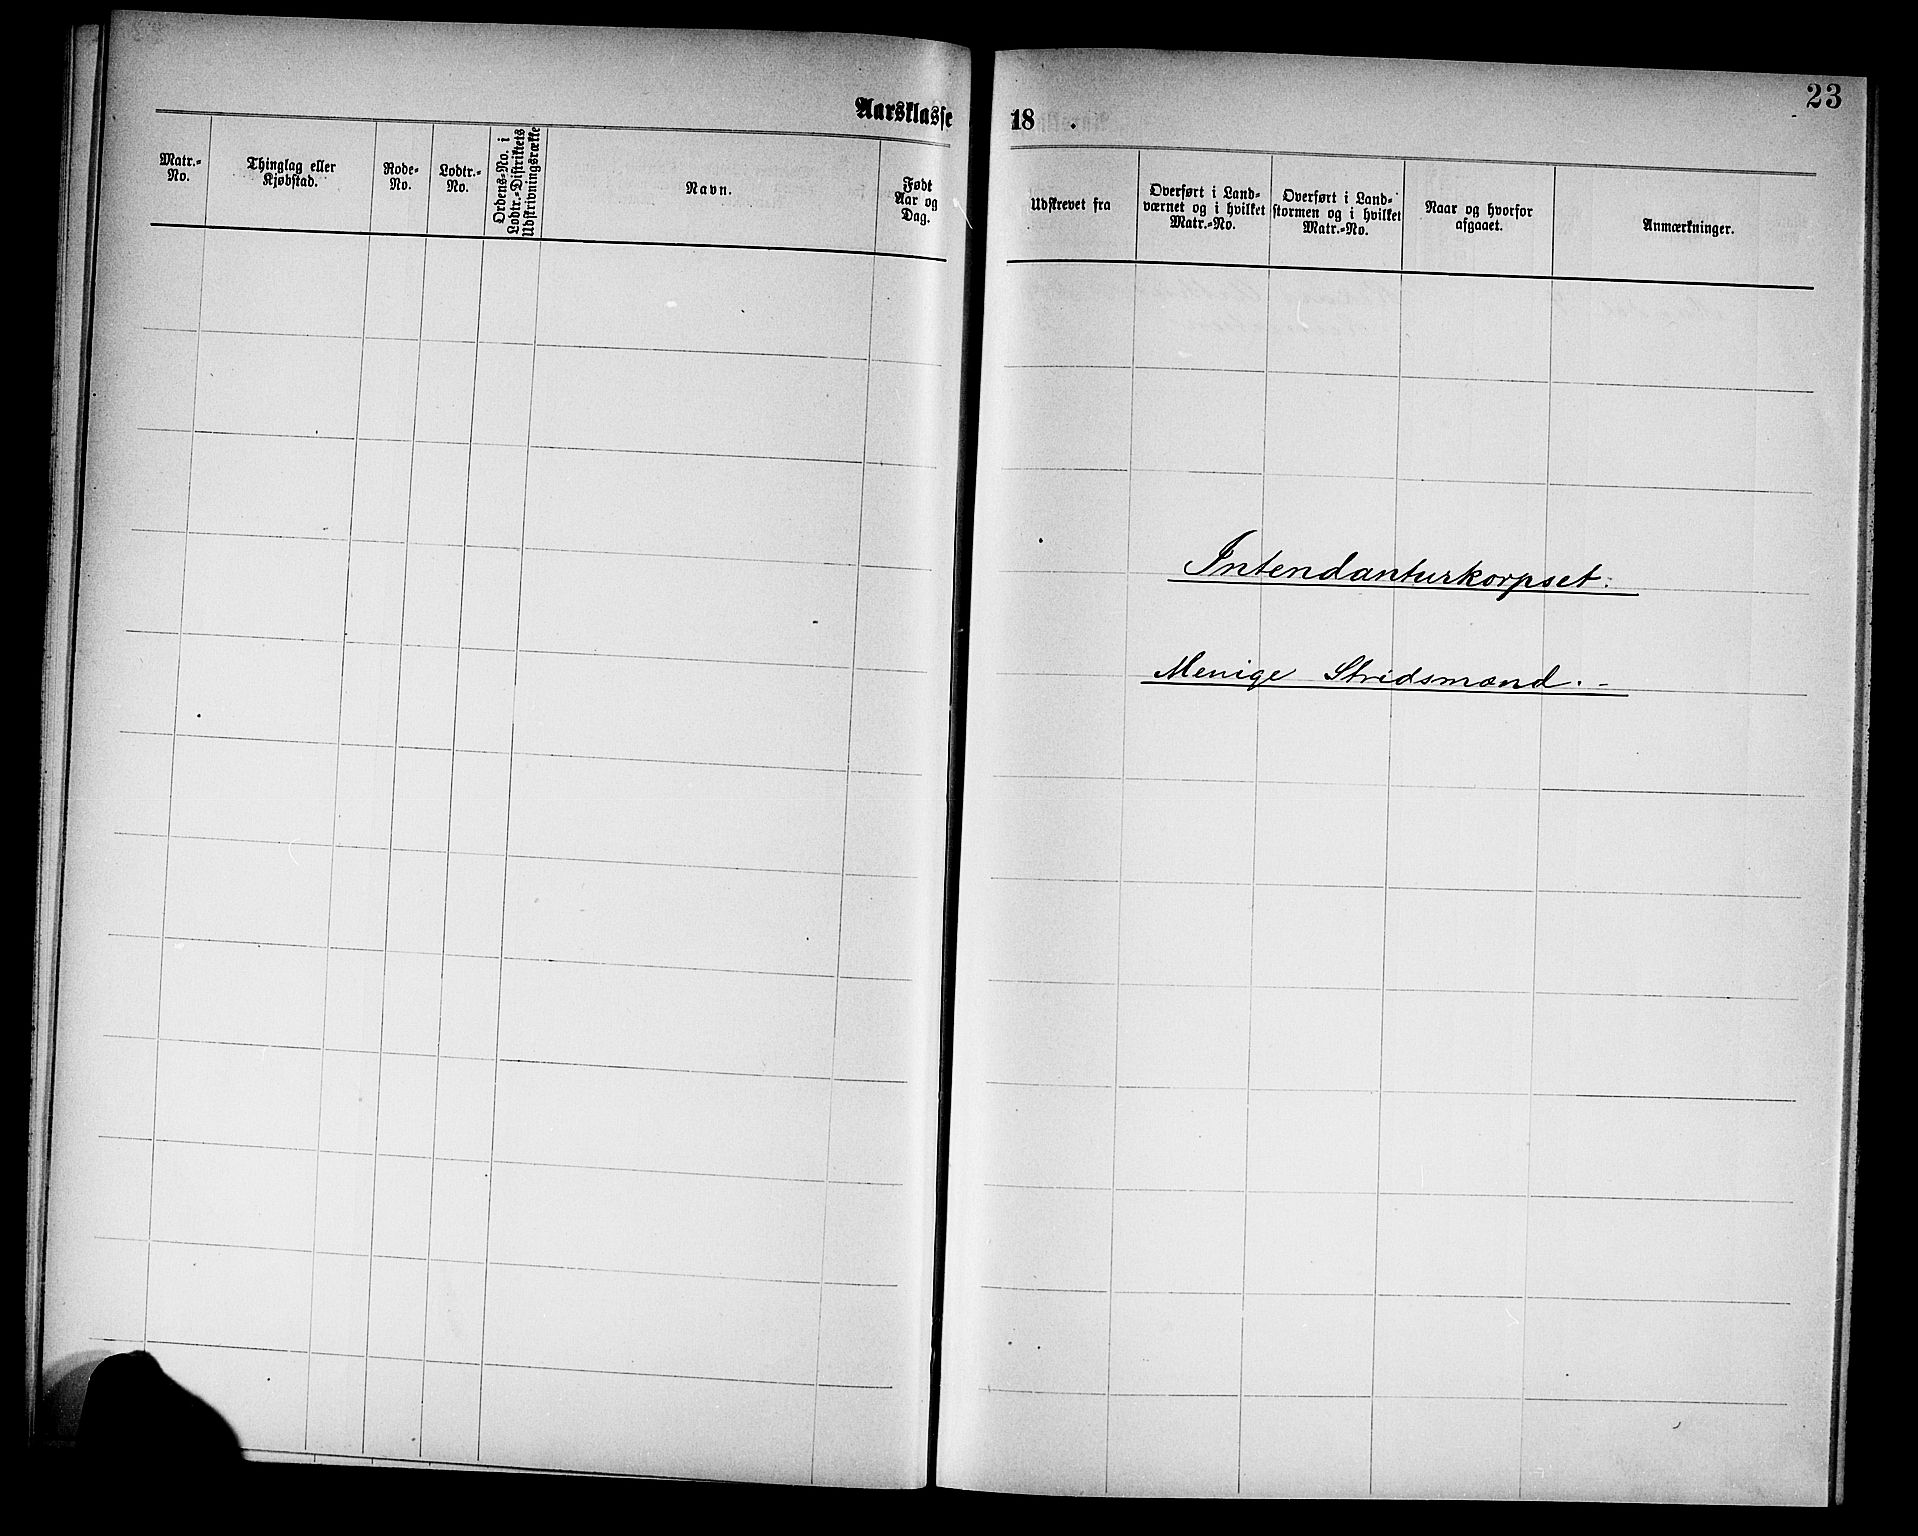 Aarsklasse 18 .
23
Matr.-
No.
Thinglag eller
Kjøbstad.
Rode-
No.
Lodtr.-
No.
Ordens-No. i
Lodtr.-Distriktets
Udskrivningsrække
Navn.
Født
Aar og
Dag.
Udskrevet fra
Overført i Land-
værnet og i hvilket
Matr.-No.
Overført i Land-
stormen og i hvilket
Matr.-No.
Naar og hvorfor
afgaaet.
Anmærkninger.
Intendanturkorpset.
Menige Stridsmænd. -